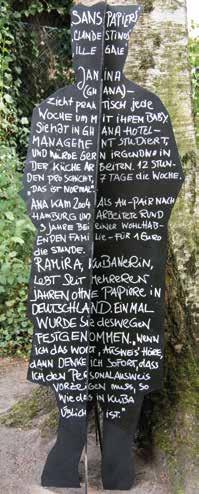 SANS PAPIERS
CLANDESTINOS
ILLEGALE
JANINA
(GHANA)-
zieht praktisch jede
Woche um mit ihrem Baby.
Sie hat in Ghana Hotel-
management studiert,
und würde gern irgendwo in
der Küche arbeiten. 12 Stun-
den pro Schicht, 7 Tage die Woche.
"Das ist normal".
ANA kam 2004 als Au-pair nach
Hamburg und arbeitete rund
3 Jahre bei einer wohlhab-
enden Familie - für 1 Euro
die Stunde.
RAMIRA, Kubanerin,
lebt seit mehreren
Jahren ohne Papiere in
Deutschland. Einmal
wurde sie deswegen
festgenommen. „Wenn
ich das Wort „Ausweis" höre,
dann denke ich sofort, dass
ich den Personalausweis
vorzeigen muss, so
wie das in Kuba
üblich ist."